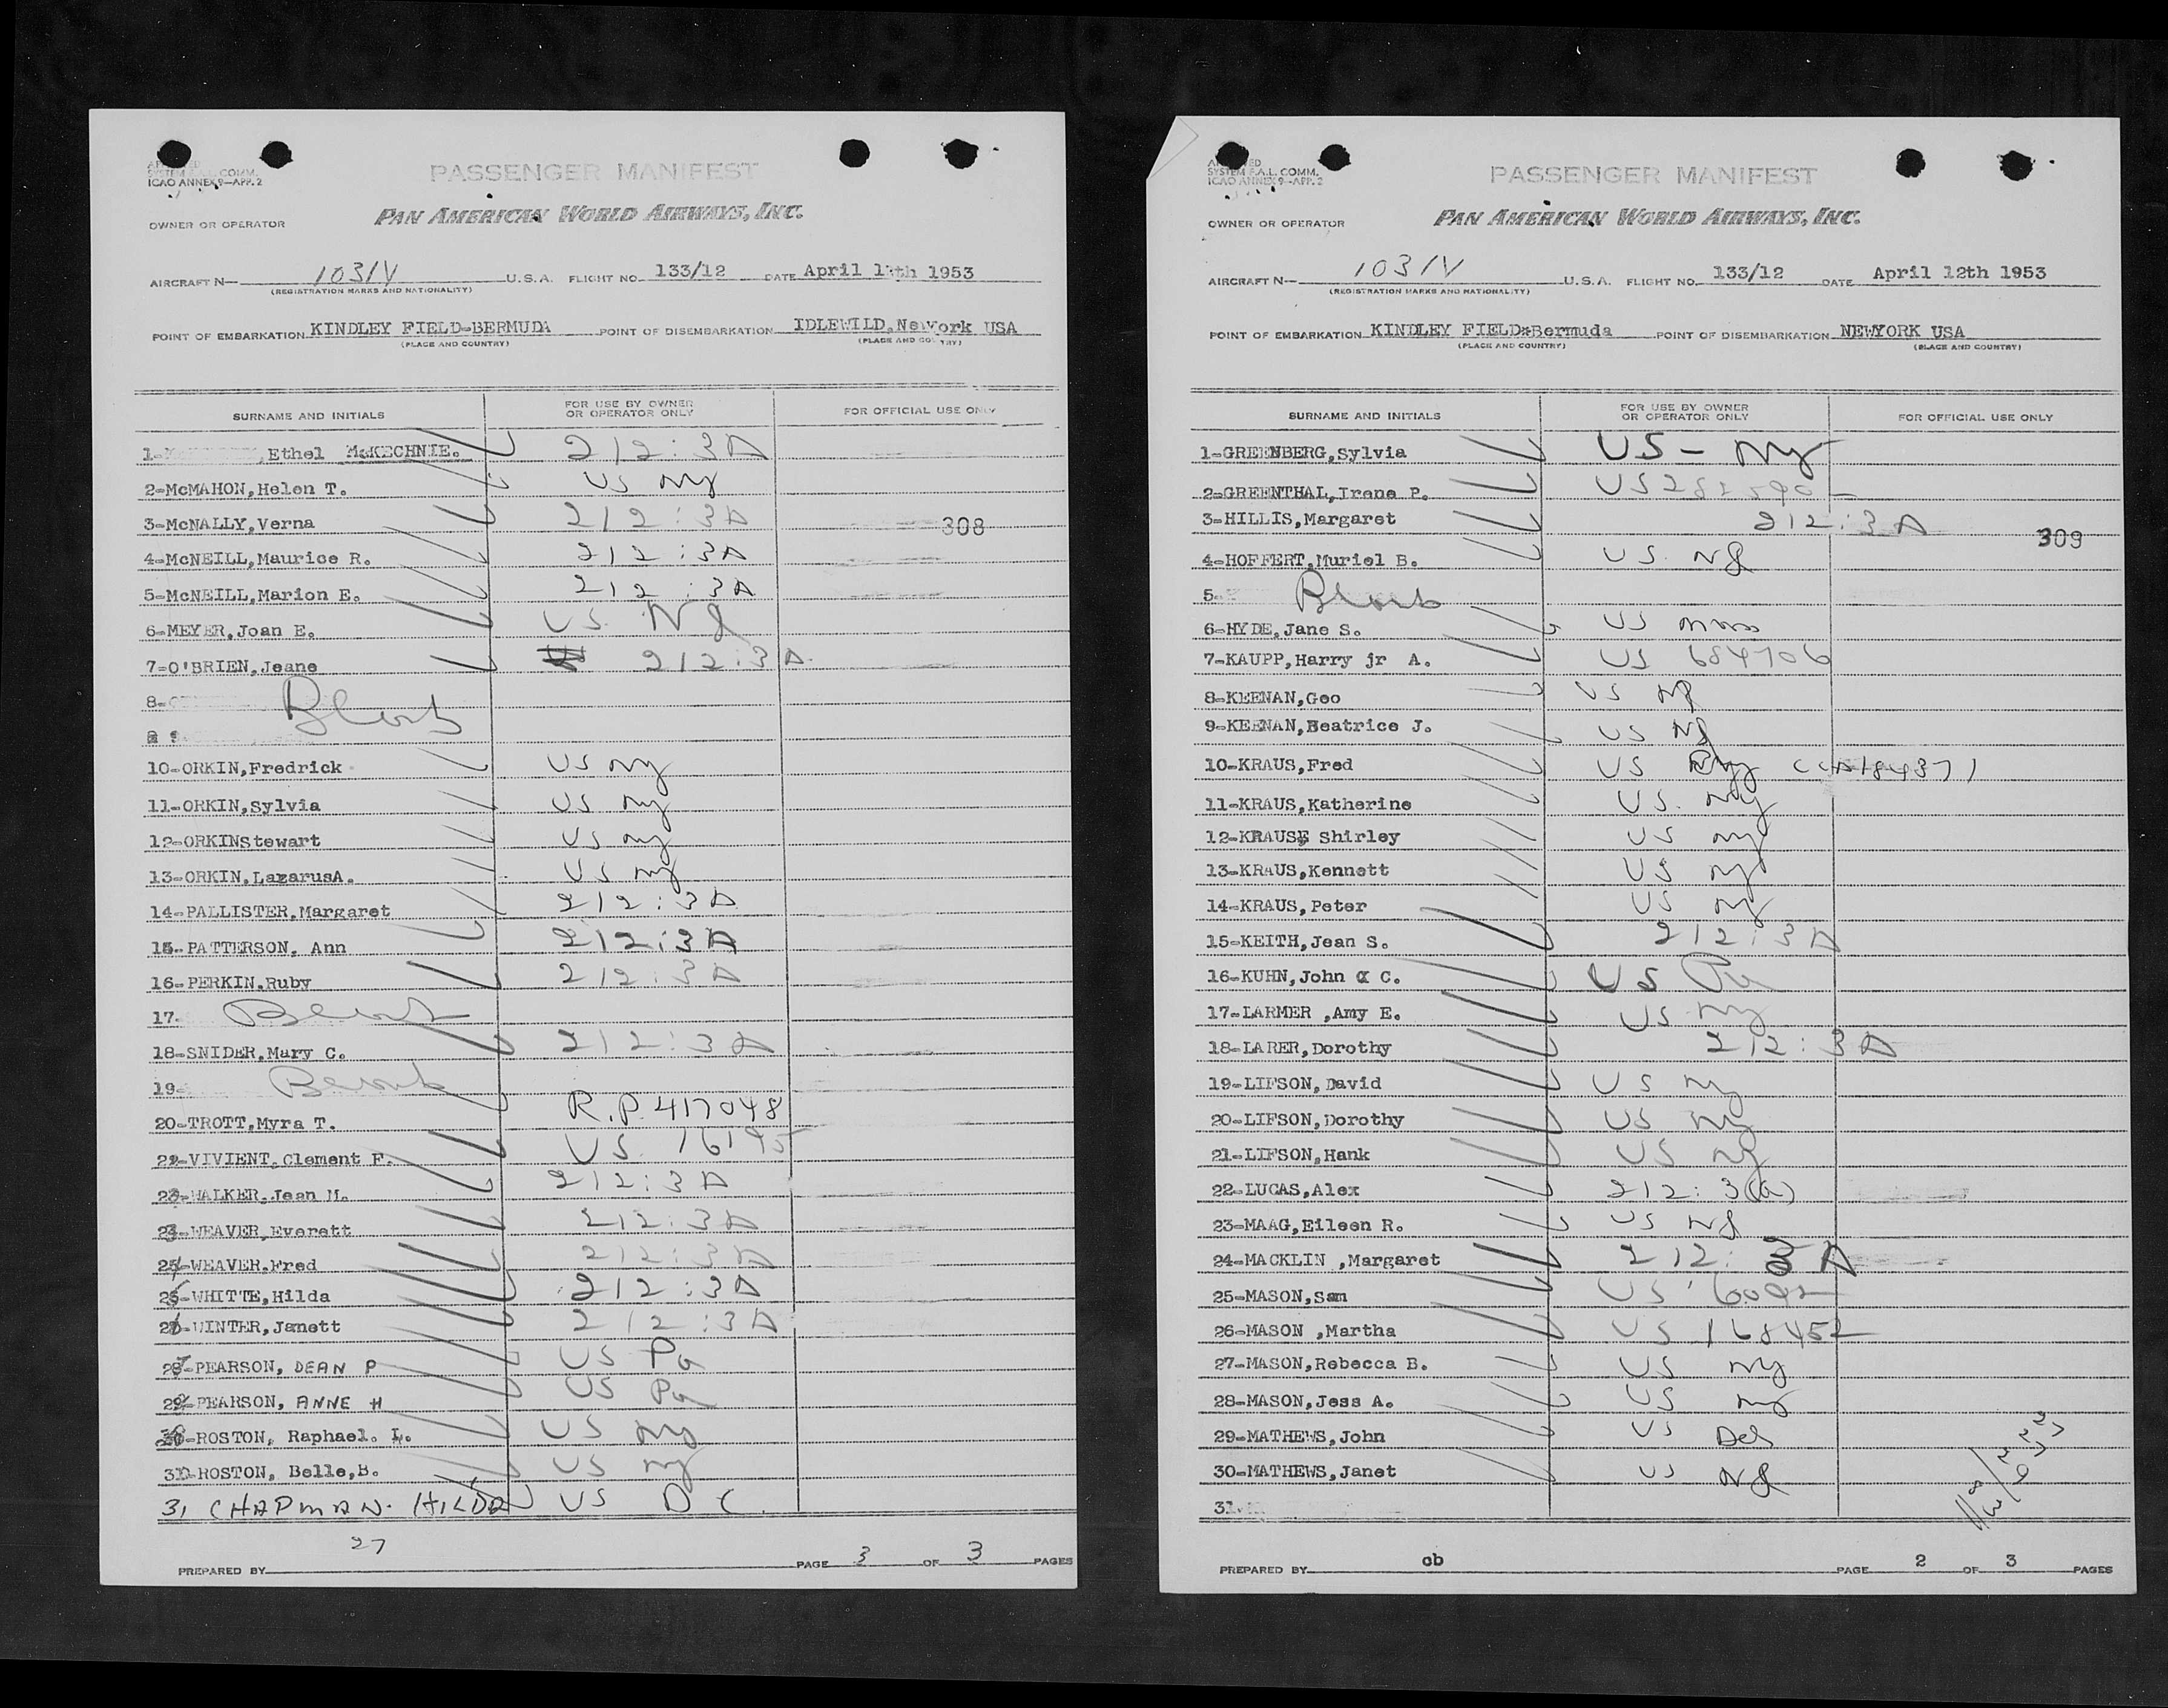 APPROVED
SYSTEM F.A.L. COMM.
ICAO ANNEX 9—APP. 2
PASSENGER MANIFEST
OWNER OR OPERATOR
PAN AMERICAN WORLD AIRWAYS, INC.
AIRCRAFT N— 1031V U.S.A. FLIGHT NO. 133/12 DATE April 12th 1953
(REGISTRATION MARKS AND NATIONALITY)
POINT OF EMBARKATION KINDLEY FIELD-BERMUDA POINT OF DISEMBARKATION IDLEWILD, NewYork USA
(PLACE AND COUNTRY) (PLACE AND COUNTRY)
SURNAME AND INITIALS FOR USE BY OWNER OR OPERATOR ONLY FOR OFFICIAL USE ONLY
1- ,Ethel McKECHNIE. 212:3A
2-McMAHON,Helen T. US NY
3-McNALLY,Verna 212:3A 308
4-McNEILL,Maurice R. 212:3A
5-McNEILL,Marion E. 212:3A
6-MEYER,Joan E. US NJ
7-O'BRIEN,Jeane 212:3A
8- Blank
9
10-ORKIN,Fredrick US NY
11-ORKIN,Sylvia US NY
12-ORKINStewart US NY
13-ORKIN,LazarusA. US NY
14-PALLISTER,Margaret 212:3A
15-PATTERSON, Ann 212:3A
16-PERKIN,Ruby 212:3A
17- Blank
18-SNIDER,Mary C. 212:3A
19- Blank
20-TROTT,Myra T. R.P. 417048
22-VIVIENT,Clement F. US 16195
23-WALKER,Jean M. 212:3A
24-WEAVER,Everett 212:3A
25-WEAVER,Fred 212:3A
26-WHITTE,Hilda 212:3A
27-WINTER,Janett 212:3A
28-PEARSON, DEAN P US Pa
29-PEARSON, ANNE H US Pa
30-ROSTON, Raphael. L. US NY
31-ROSTON, Belle,B. US NY
31 CHAPMAN. HILDA US D C.
27
PREPARED BY PAGE 3 OF 3 PAGES
APPROVED
SYSTEM F.A.L. COMM.
ICAO ANNEX 9—APP. 2
PASSENGER MANIFEST
OWNER OR OPERATOR
PAN AMERICAN WORLD AIRWAYS, INC.
AIRCRAFT N— 1031V U.S.A. FLIGHT NO. 133/12 DATE April 12th 1953
(REGISTRATION MARKS AND NATIONALITY)
POINT OF EMBARKATION KINDLEY FIELD*Bermuda POINT OF DISEMBARKATION NEWYORK USA
(PLACE AND COUNTRY) (PLACE AND COUNTRY)
SURNAME AND INITIALS FOR USE BY OWNER OR OPERATOR ONLY FOR OFFICIAL USE ONLY
1-GREENBERG,Sylvia US - NY
2-GREENTHAL,Irene P. US
3-HILLIS,Margaret 212:3A 309
4-HOFFERT,Muriel B. US NJ
5- Blank
6-HYDE,Jane S. US Mass
7-KAUPP,Harry jr A. US 684706
8-KEENAN,Geo US NJ
9-KEENAN,Beatrice J. US NJ
10-KRAUS,Fred US NY
11-KRAUS,Katherine US. NY
12-KRAUSE Shirley US NY
13-KRAUS,Kennett US NY
14-KRAUS,Peter US NY
15-KEITH,Jean S. 212:3A
16-KUHN,John C. US Pa
17-LARMER ,Amy E. US NY
18-LARER,Dorothy 212:3A
19-LIFSON,David US NY
20-LIFSON,Dorothy US NY
21-LIFSON,Hank US NY
22-LUCAS,Alex 212:3(a)
23-MAAG,Eileen R. US NJ
24-MACKLIN ,Margaret 212:3A
25-MASON,Sam US 6092
26-MASON ,Martha US 168452
27-MASON,Rebecca B. US NY
28-MASON,Jess A. US NY
29-MATHEWS,John US Del
30-MATHEWS,Janet US NJ
31-
PREPARED BY cb PAGE 2 OF 3 PAGES